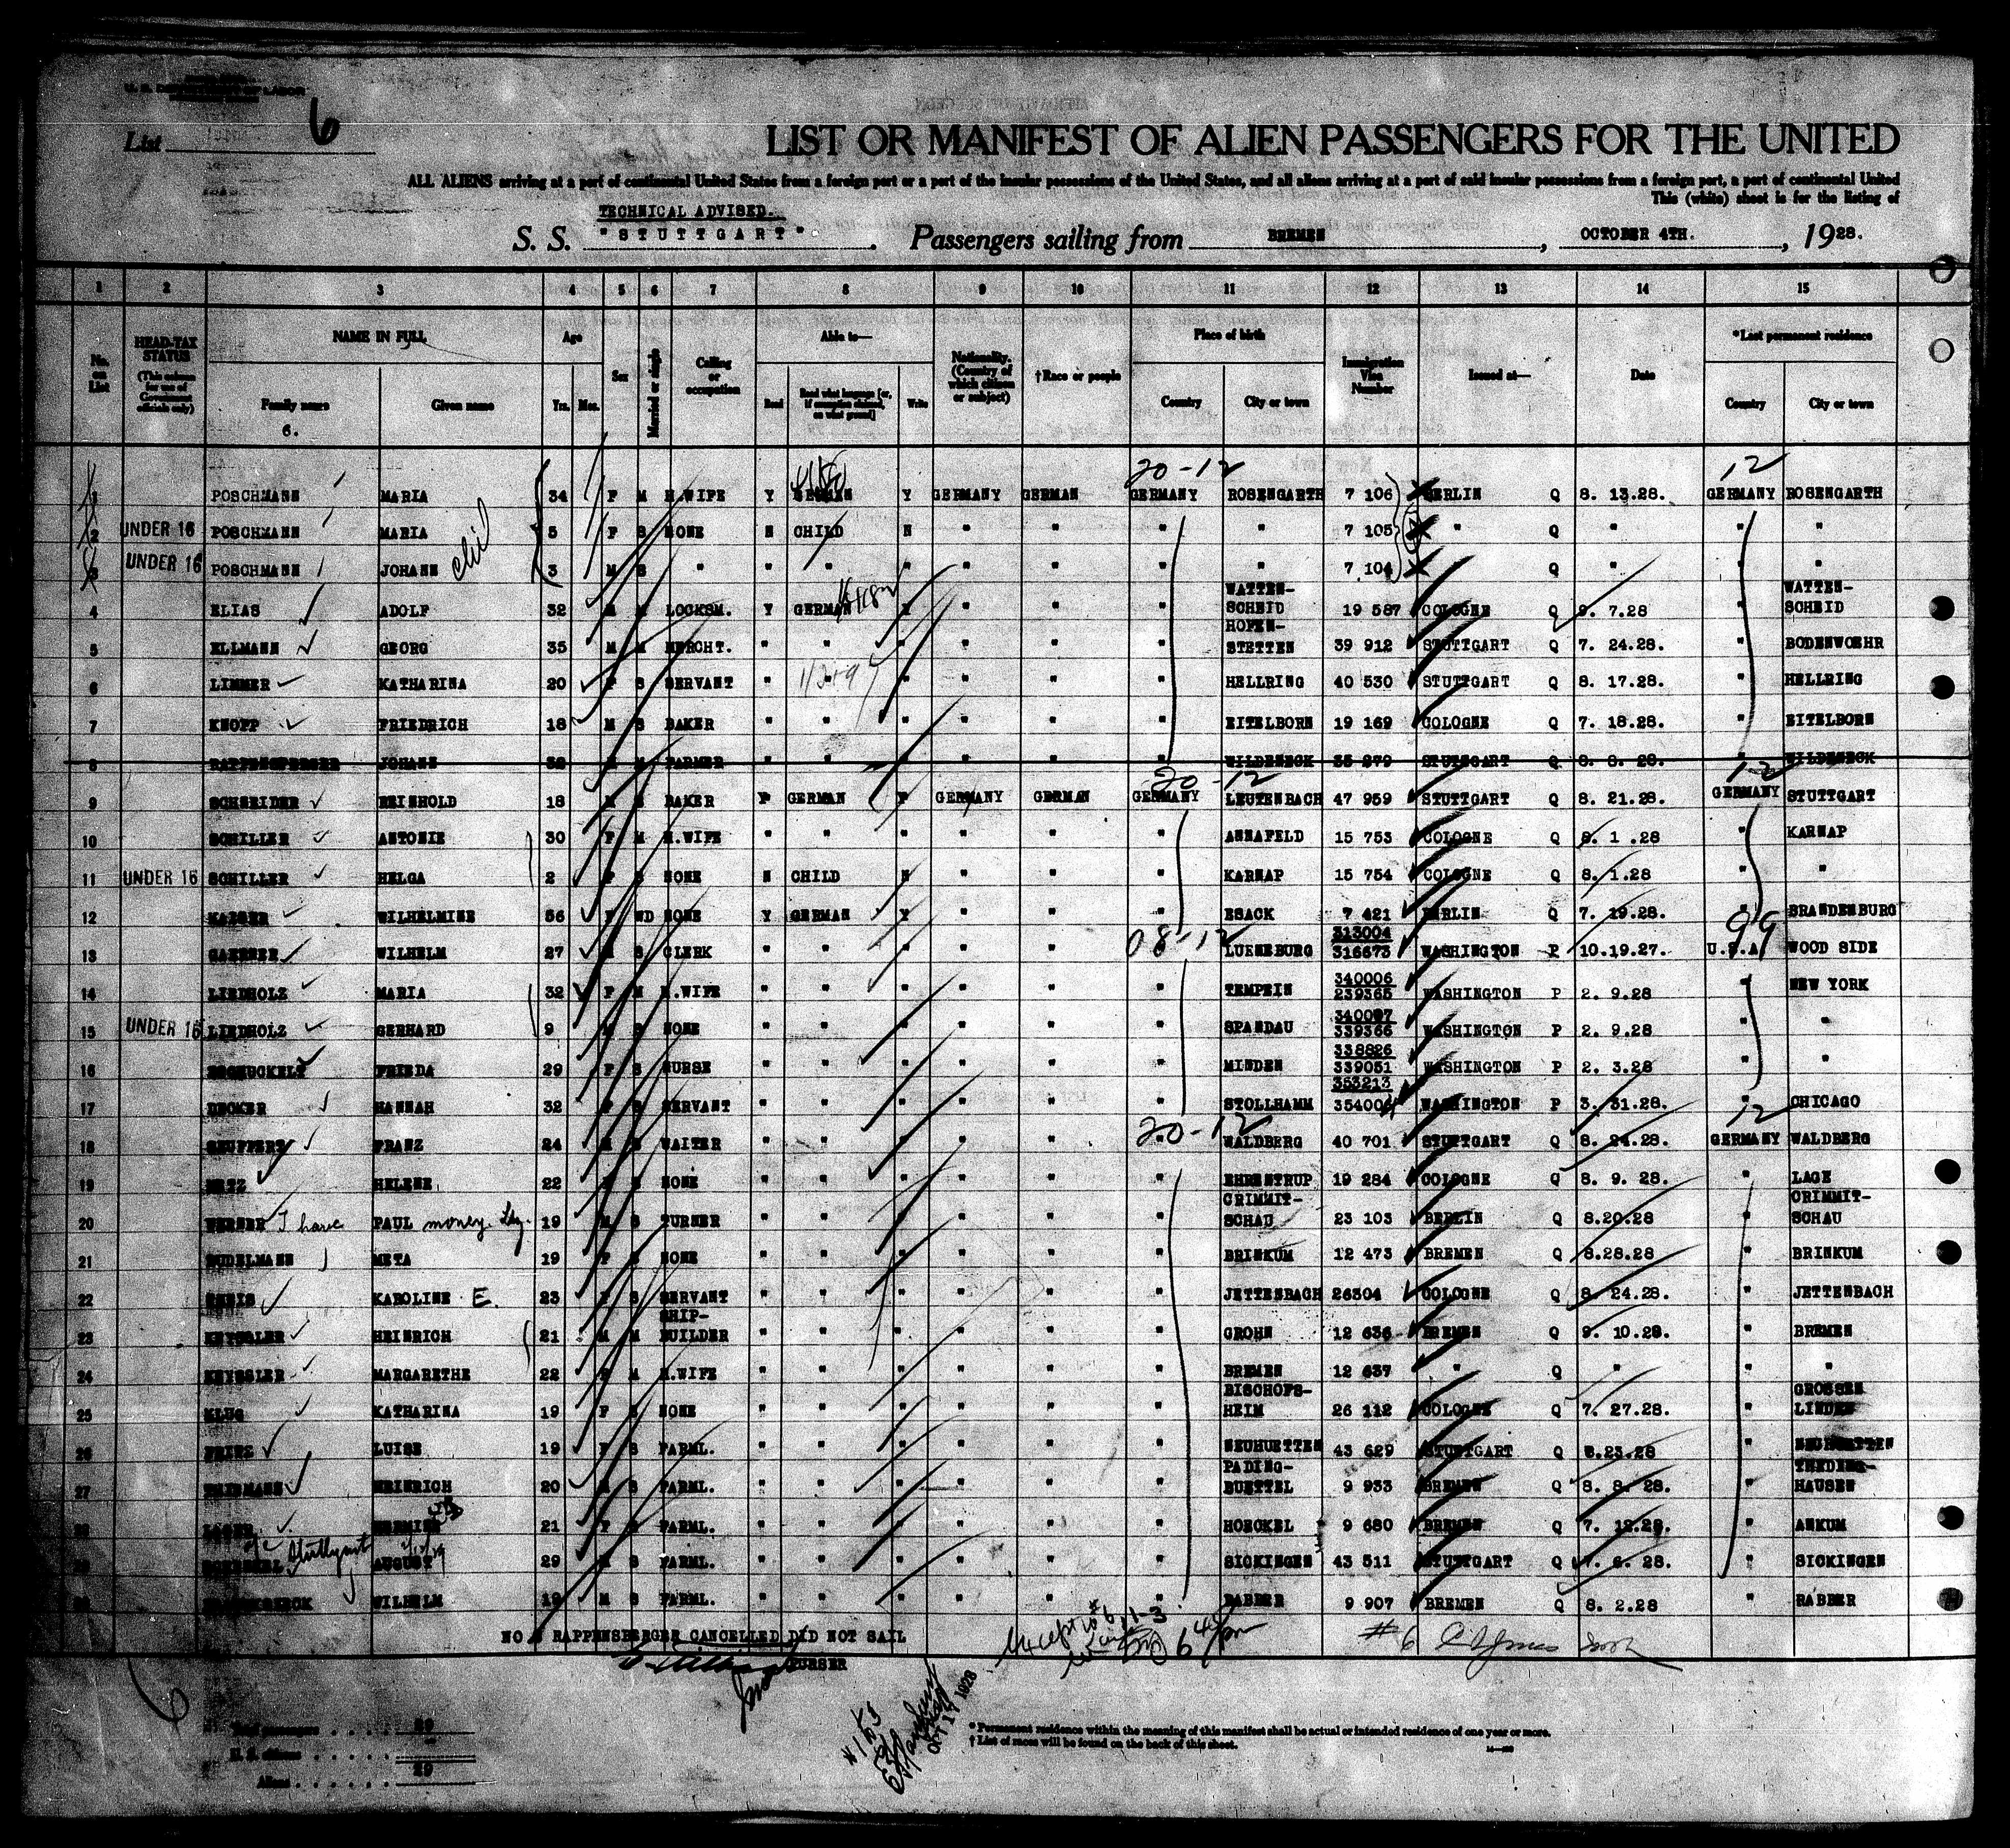 U. S. DEPARTMENT OF LABOR
List 6
LIST OR MANIFEST OF ALIEN PASSENGERS FOR THE UNITED
ALL ALIENS arriving at a port of continental United States from a foreign port or a port of the insular possessions of the United States, and all aliens arriving at a port of said insular possessions from a foreign port, a port of continental United
This (white) sheet is for the listing of
TECHNICAL ADVISED.
S. S. "STUTTGART". Passengers sailing from BREMEN, OCTOBER 4TH., 1928.
1 2 3 4 5 6 7 8 9 10 11 12 13 14 15
No. on List
HEAD-TAX STATUS (This column for use of Government officials only)
NAME IN FULL Family name Given name
6.
Age Yrs. Mos.
Sex
Married or single
Calling or occupation
Able to— Read Read what language [or, if exemption claimed, on what ground] Write
Nationality. (Country of which citizen or subject)
†Race or people
Place of birth Country City or town
Immigration Visa Number
Issued at—
Date
*Last permanent residence Country City or town
20-12 12
1 POSCHMANN MARIA 34 F M H.WIFE Y GERMAN Y GERMANY GERMAN GERMANY ROSENGARTH 7 106 BERLIN Q 8. 13.28. GERMANY ROSENGARTH
2 UNDER 16 POSCHMANN MARIA 5 F S NONE N CHILD N " " " " 7 105 " Q " " "
3 UNDER 16 POSCHMANN JOHANN 3 M S " " " " " " " " 7 104 " Q " " "
4 ELIAS ADOLF 32 M M LOCKSM. Y GERMAN Y " " " WATTEN-SCHEID 19 587 COLOGNE Q 9. 7.28 " WATTEN-SCHEID
5 ELLMANN GEORG 35 M M MERCHT. " " " " " " HOFEN-STETTEN 39 912 STUTTGART Q 7. 24.28. " BODENWOEHR
6 LIMMER KATHARINA 20 F S SERVANT " " " " " " HELLRING 40 530 STUTTGART Q 8. 17.28. " HELLRING
7 KNOPP FRIEDRICH 18 M S BAKER " " " " " " EITELBORN 19 169 COLOGNE Q 7. 18.28. " EITELBORN
8 RAPPENSPERGER JOHANN FARMER WILDENECK STUTTGART Q 8. 8. 28. " WILDENECK
20-12 12
9 SCHNEIDER REINHOLD 18 M S BAKER GERMAN GERMANY GERMAN GERMANY LEUTENBACH 47 959 STUTTGART Q 8. 21.28. GERMANY STUTTGART
10 SCHILLER ANTONIE 30 F M H.WIFE " " " " " " ANNAFELD 15 753 COLOGNE Q 8. 1 .28 " KARNAP
11 UNDER 16 SCHILLER HELGA 2 F S NONE N CHILD N " " " KARNAP 15 754 COLOGNE Q 8. 1.28 " "
12 WILHELMINE 56 F WD NONE Y GERMAN Y " " " ESACK 7 421 BERLIN Q 7. 19.28. " BRANDENBURG
08-12 99
13 WILHELM 27 M S CLERK " " " " " " LUENEBURG 313004 316673 WASHINGTON P 10.19.27. U.S.A. WOOD SIDE
14 LIEDHOLZ MARIA 32 F M H.WIFE " " " " " " TEMPEIN 340006 239365 WASHINGTON P 2. 9.28 " NEW YORK
15 UNDER 16 LIEDHOLZ GERHARD 9 M S NONE " " " " " " SPANDAU 340007 339366 WASHINGTON P 2. 9.28 " "
16 FRIEDA 29 F S NURSE " " " " " " MINDEN 338826 339051 WASHINGTON P 2. 3.28 " "
17 DECKER HANNAH 32 F S SERVANT " " " " " " STOLLHAMM 353213 354004 WASHINGTON P 3. 31.28. CHICAGO
20-12 12
18 SEUFFERT FRANZ 24 M S WAITER " " " " " " WALDBERG 40 701 STUTTGART Q 8. 24.28. GERMANY WALDBERG
19 METZ HELENE 22 F S NONE " " " " " " EHRENTRUP 19 284 COLOGNE Q 8. 9. 28. " LAGE
20 WERNER I have PAUL money 19 M S TURNER " " " " " " CRIMMIT-SCHAU 23 103 BERLIN Q 8.20.28 " CRIMMIT-SCHAU
21 BUDELMANN META 19 F S NONE " " " " " " BRINKUM 12 473 BREMEN Q 8.28.28 " BRINKUM
22 KAROLINE E. 23 F S SERVANT " " " " " " JETTENBACH 26304 COLOGNE Q 8. 24.28. " JETTENBACH
23 KEYSSLER HEINRICH 21 M M SHIP-BUILDER " " " " " " GROHN 12 636 BREMEN Q 9. 10.28. " BREMEN
24 KEYSSLER MARGARETHE 22 F M H.WIFE " " " " " " BREMEN 12 637 " Q " " "
25 KLUG KATHARINA 19 F S NONE " " " " " " BISCHOFS-HEIM 26 112 COLOGNE Q 7. 27.28. " GROSSEN LINDEN
26 FRITZ LUISE 19 F S FARML. " " " " " " NEUHUETTEN 43 629 STUTTGART Q 8.23.28 " NEUHUETTEN
27 HEINRICH 20 M S FARML. " " " " " " PADING-BUETTEL 9 933 BREMEN Q 8. 8. 28. " THEDING-HAUSEN
28 21 F S FARML. " " " " " " HOECKEL 9 680 BREMEN Q 7. 12.28. " ANKUM
29 Stuttgart AUGUST 29 M S FARML. " " " " " " SICKINGEN 43 511 STUTTGART Q 7. 6. 28. " SICKINGEN
30 WILHELM 19 M S FARML. " " " " " " RABBER 9 907 BREMEN Q 8. 2.28 " RABBER
NO 8 RAPPENSBERGER CANCELLED DID NOT SAIL
PURSER
OCT 17 1928
Total passengers 29
U. S. citizens
Aliens 29
* Permanent residence within the meaning of this manifest shall be actual or intended residence of one year or more.
† List of races will be found on the back of this sheet.